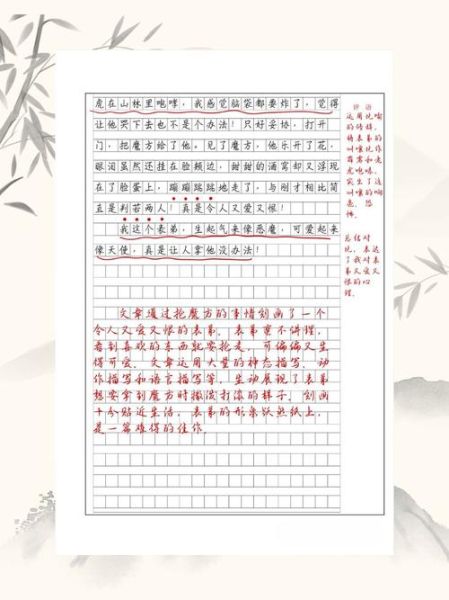 虎在山林里咆哮，我感觉脑袋都要炸了，觉得
让他哭下去也不是个办法！只好妥协，打开
门，把魔方给了他。见了魔方，他乐开了花，
眼泪虽然还挂在脸颊边，甜甜的酒窝却又浮现
在了脸蛋上，蹦蹦跳跳地走了，与刚才相比简
直是判若两人！真是令人又爱又恨！
我这个表弟，生起气来像恶魔，可爱起来
像天使，真是让人拿他没办法！
文章通过抢魔方的事情刻画了一个
令人又爱又恨的表弟，表弟蛮不讲理，
看到喜欢的东西就要抢走，可偏偏又生
得可爱。文章运用大量的神态描写、动
作描写和语言描写等，生动展现了表弟
想要拿到魔方时撒泼打滚的样子，刻画
十分贴近生活，表弟的形象跃然纸上，
是一篇难得的佳作。
评语
运用比喻
的修辞，
将表弟的
叫嚷比作
霹雳和老
虎咆哮，
突出了这
叫嚷的响
亮、恐
怖。
总结对
比，表达
了我对表
弟又爱又
恨的心
理。